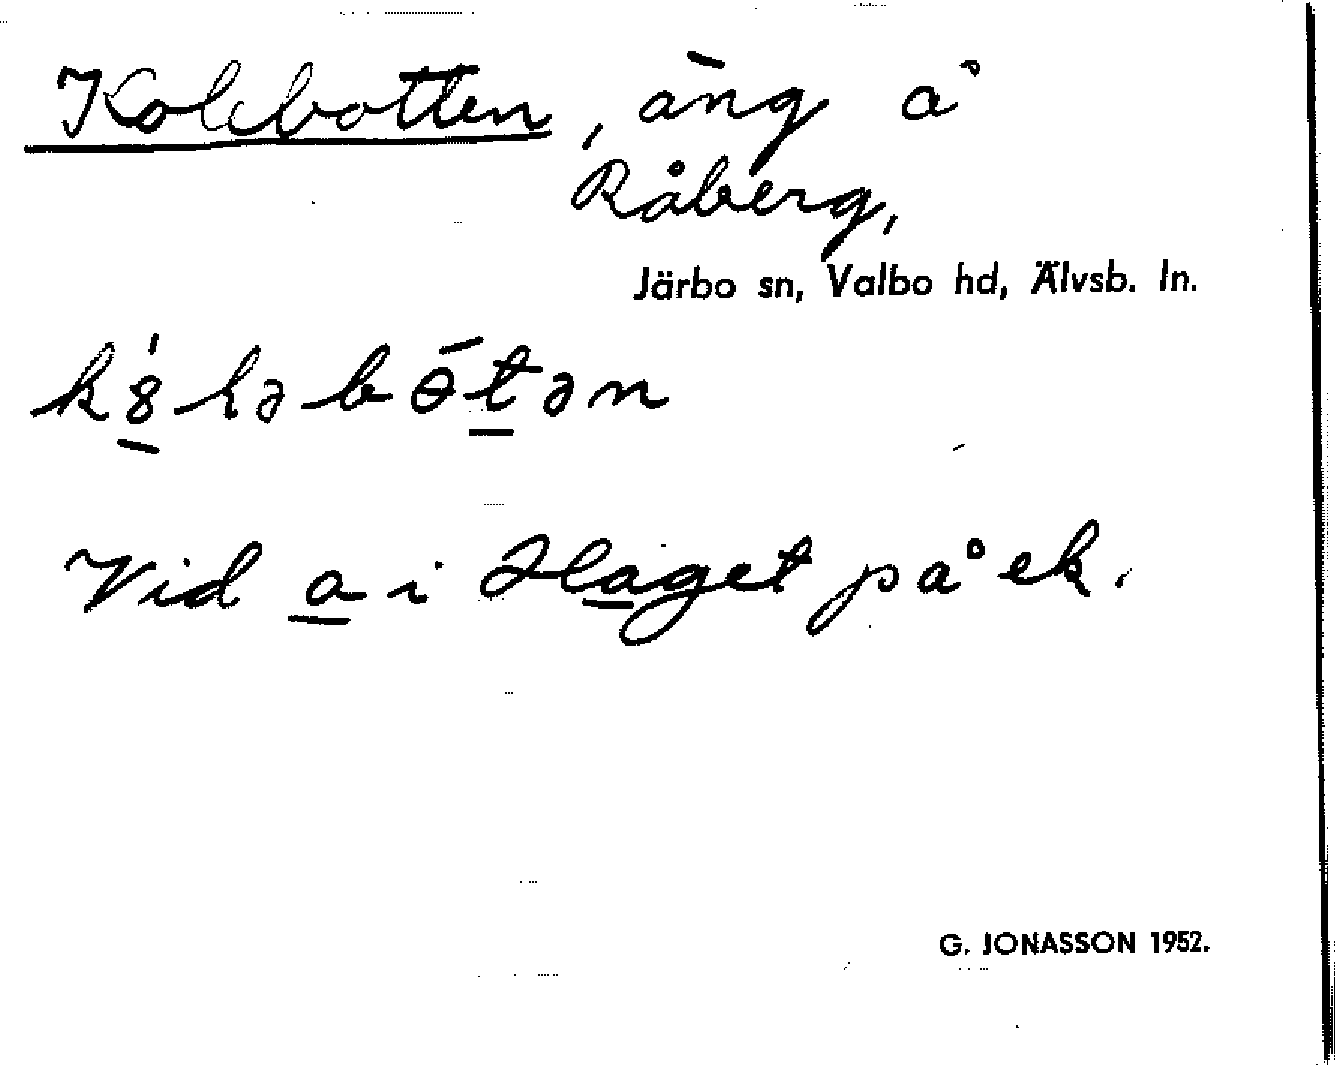 Kolebotten, äng å
Råberg,
Järbo sn, Valbo hd, Älvsb. ln.
Vid a i Haget på ek.
G. JONASSON 1952.